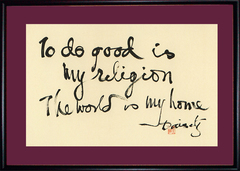 To do good is
my religion
The world is my home
Daisetz